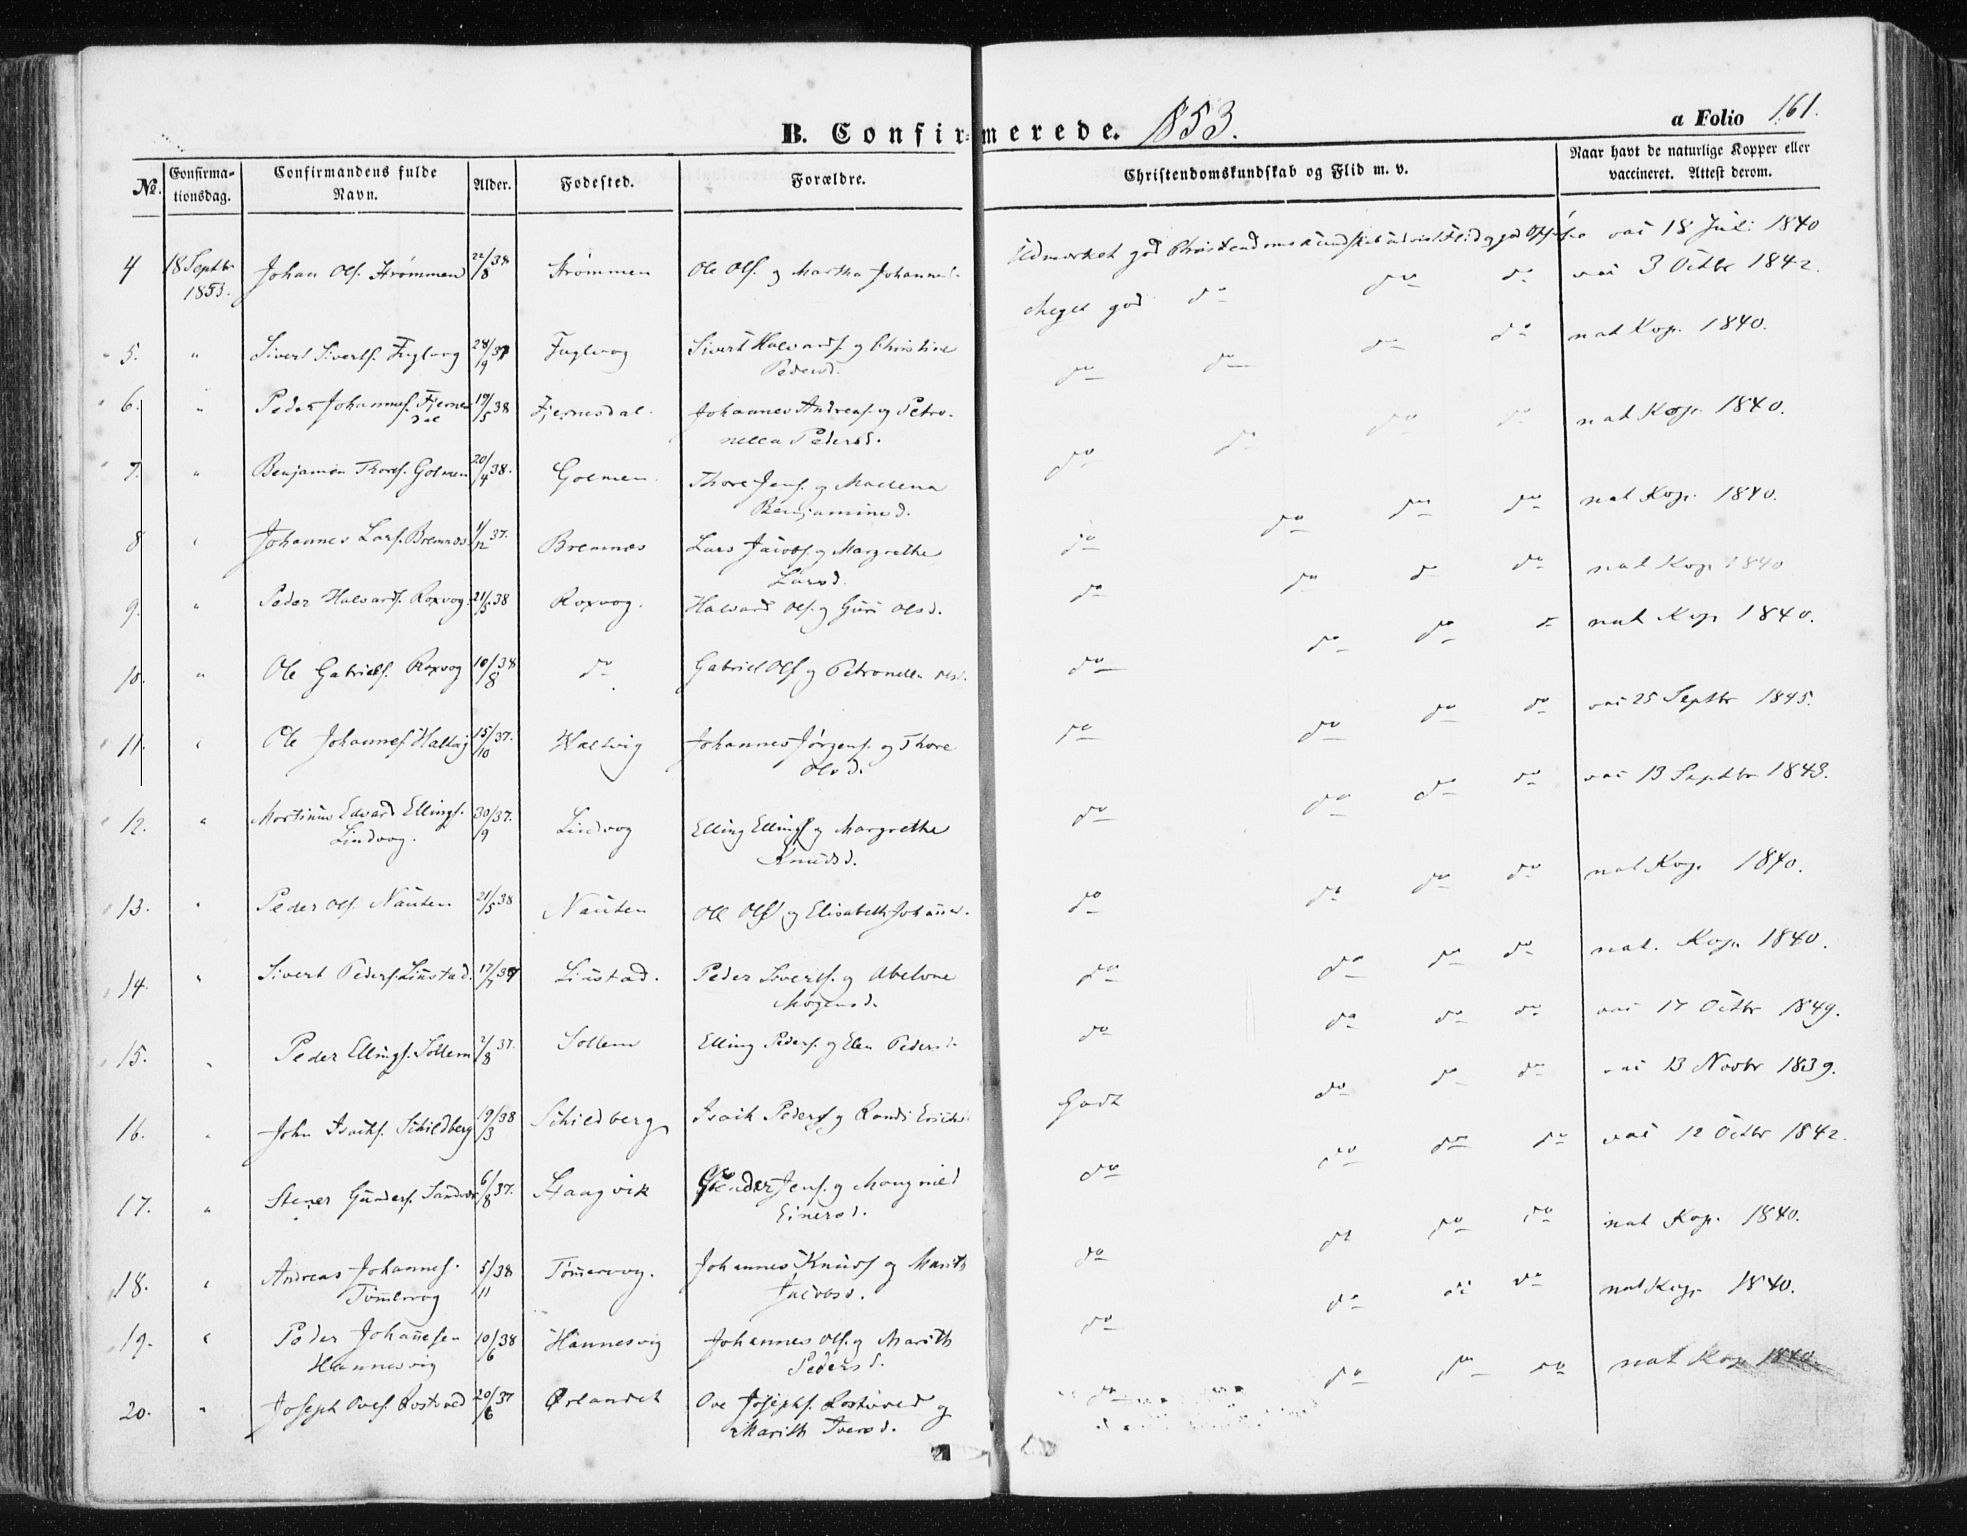 B. Confirmerede. 1853.
a Folio 161.
No. Confirmationsdag. Confirmandens fulde Navn. Alder. Fødested. Forældre. Christendomskundskab og Flid m. v. Naar havt de naturlige Kopper eller vaccineret. Attest derom.
4 18 Septbr 1853. Johan Ols. Strømmen 22/8 38 Strømmen Ole Ols. og Martha Johannes. Udmærket god Christendomskundskab udvist Flid og god vac 18 Juli 1840
Meget god do do do vac 3 Octbr 1842.
5. " Sivert Siverts. Fuglvog 28/9 37 Fuglvog Sivert Halvards. og Christine Pedersd. do do do do nat Kop. 1840.
6. " Peder Johannes. Fjernesdal 19/5 38 Fjernesdal. Johannes Andreas. og Petronella Pedersd. do do do do nat Kop. 1840.
7. " Benjamin Thores. Golmen 20/4 38. Golmen. Thore Jens. og Mallena Benjamined. do do do do nat Kop. 1840.
8 " Johannes Lars. Bremnes 1/12 37. Bremnæs Lars Jacobs. og Margrethe Larsd. do do do do nat Kop 1840
9. " Peder Halvards. Roxvog. 21/5 38 Roxvog. Halvard Ols. og Guri Olsd. do do do do nat Kop 1840.
10. " Ole Gabriels. Roxvog 10/8 38 do Gabriel Ols og Petronella Olsd. do do do do vac 25 Septbr 1845.
11. " Ole Johannes. 15/10 37. Johannes Jørgens. og Thore Olsd. do do do do vac 13 Septbr 1843.
12. " Martinus Edvard Ellings. Lindvog. 30/9 37. Lindvog Elling Ellings og Margrethe Knudsd. do do do do nat Kop. 1840.
13. " Peder Ols. Nausten 21/5 38 Nausten Ole Ols og Elisabeth Johannes. do do do do nat. Kop. 1840.
14. " Sivert Peders. Liustad. 17/7 37 Liustad. Peder Siverts. og Abelone Mogensd. do do do do vac 17 Octbr 1849.
15. " Peder Ellings. Sollem 2/8 37. Sollem Elling Peders. og Elen Pedersd. do do do do vac 13 Novbr 1839.
16. " John Isaks. Schildberg 19/3 38 Schildberg Isack Peders og Randi Erichsd. Godt do do do vac 12 Octbr 1842.
17. " Stener Gunders. Sandvik 6/8 37. Stangvik Gunder Jens. og Mangnild Einersd. do do do do nat Kop. 1840.
18. " Andreas Johannes. Tømervog 5/11 38 Tømervog. Johannes Knuds og Marith Jacobsd. do do do do nat Kop. 1840.
19. " Peder Johannesen Hannesvig 10/6 38 Hannesvig Johannes Ols. og Marith Pedersd. do do do do nat Kop 1840.
20. " Joseph Oves. Rostved 20/6 37 Ørlandet Ove Josephs. Rostved og Marith Iversd. do